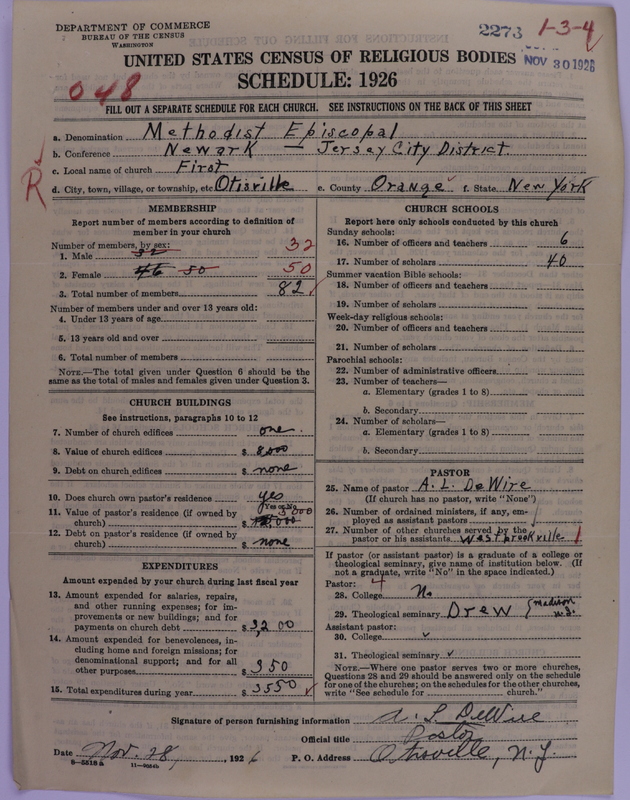 DEPARTMENT OF COMMERCE
BUREAU OF THE CENSUS
WASHINGTON
2273 1-3-4
NOV 30 1926
UNITED STATES CENSUS OF RELIGIOUS BODIES
SCHEDULE: 1926
048
FILL OUT A SEPARATE SCHEDULE FOR EACH CHURCH. SEE INSTRUCTIONS ON THE BACK OF THIS SHEET
a. Denomination Methodist Episcopal
b. Conference Newark — Jersey City District.
c. Local name of church First
R
d. City, town, village, or township, etc Otisville e. County Orange f. State New York
MEMBERSHIP
Report number of members according to definition of
member in your church
Number of members, by sex:
1. Male 32 32
2. Female 46 50 50
3. Total number of members 82
Number of members under and over 13 years old:
4. Under 13 years of age
5. 13 years old and over
6. Total number of members
NOTE.—The total given under Question 6 should be the
same as the total of males and females given under Question 3.
CHURCH BUILDINGS
See instructions, paragraphs 10 to 12
7. Number of church edifices one.
8. Value of church edifices $ 8000
9. Debt on church edifices $ none
10. Does church own pastor's residence yes
Yes or No
11. Value of pastor's residence (if owned by
church) $ 3000
12. Debt on pastor's residence (if owned by
church) $ none
EXPENDITURES
Amount expended by your church during last fiscal year
13. Amount expended for salaries, repairs,
and other running expenses; for im-
provements or new buildings; and for
payments on church debt $ 3,200
14. Amount expended for benevolences, in-
cluding home and foreign missions; for
denominational support; and for all
other purposes $ 350
15. Total expenditures during year $ 3550
CHURCH SCHOOLS
Report here only schools conducted by this church
Sunday schools:
16. Number of officers and teachers 6
17. Number of scholars 40
Summer vacation Bible schools:
18. Number of officers and teachers
19. Number of scholars
Week-day religious schools:
20. Number of officers and teachers
21. Number of scholars
Parochial schools:
22. Number of administrative officers
23. Number of teachers—
a. Elementary (grades 1 to 8)
b. Secondary
24. Number of scholars—
a. Elementary (grades 1 to 8)
b. Secondary
PASTOR
25. Name of pastor A. L. DeWire
(If church has no pastor, write "None")
26. Number of ordained ministers, if any, em-
ployed as assistant pastors
27. Number of other churches served by the
pastor or his assistants Westbrookville 1
If pastor (or assistant pastor) is a graduate of a college or
theological seminary, give name of institution below. (If
not a graduate, write "No" in the space indicated.)
Pastor: 4
28. College No
29. Theological seminary Drew (Madison N.J.
Assistant pastor:
30. College
31. Theological seminary
NOTE.—Where one pastor serves two or more churches,
Questions 28 and 29 should be answered only on the schedule
for one of the churches; on the schedules for the other churches,
write "See schedule for church."
Signature of person furnishing information A. L. DeWire
Official title Pastor
Date Nov. 28, 1926 P. O. Address Otisville, N.Y.
8-5518a 11-9264b